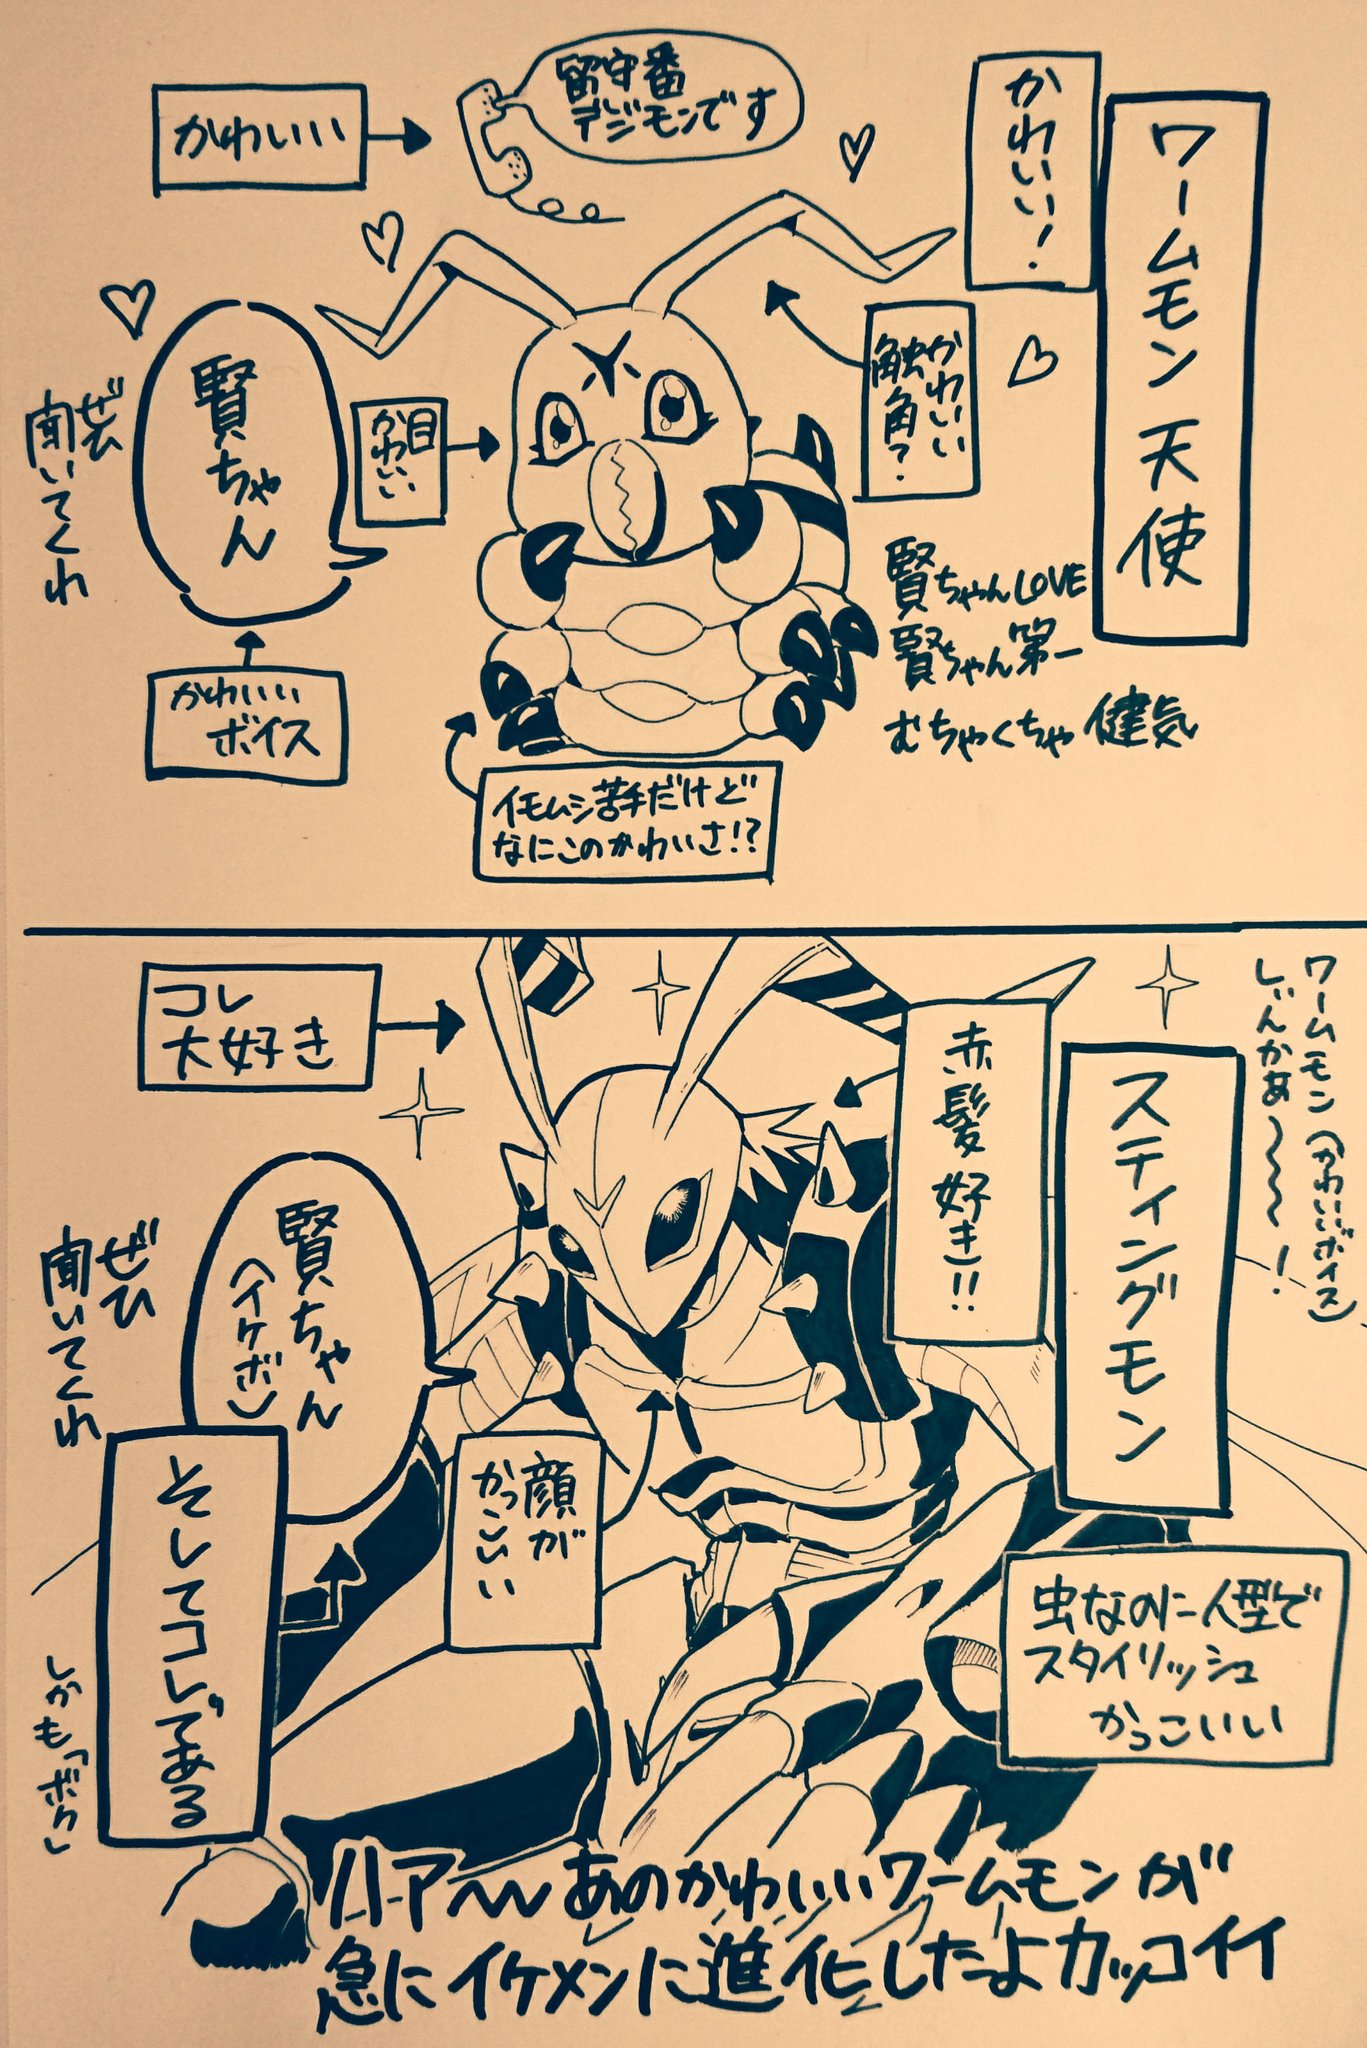 ワームモン天使
かわいい!
留守番
デジモンです
かわいい
かわいい
触角?
目
かわいい
賢ちゃん
ぜひ
聞いてくれ
かわいい
ボイス
賢ちゃんLOVE
賢ちゃん第一
むちゃくちゃ健気
イモムシ苦手だけど
なにこのかわいさ!?
ワームモン(かわいいボイス)
しぃんかあ〜〜〜〜!
スティングモン
赤髪好き!!
コレ
大好き
賢ちゃん
(イケボ)
ぜひ
聞いてくれ
顔が
かっこいい
そしてコレである
しかも「ボク」
虫なのに人型で
スタイリッシュ
かっこいい
ハァ〜〜あのかわいいワームモンが
急にイケメンに進化したよカッコイイ